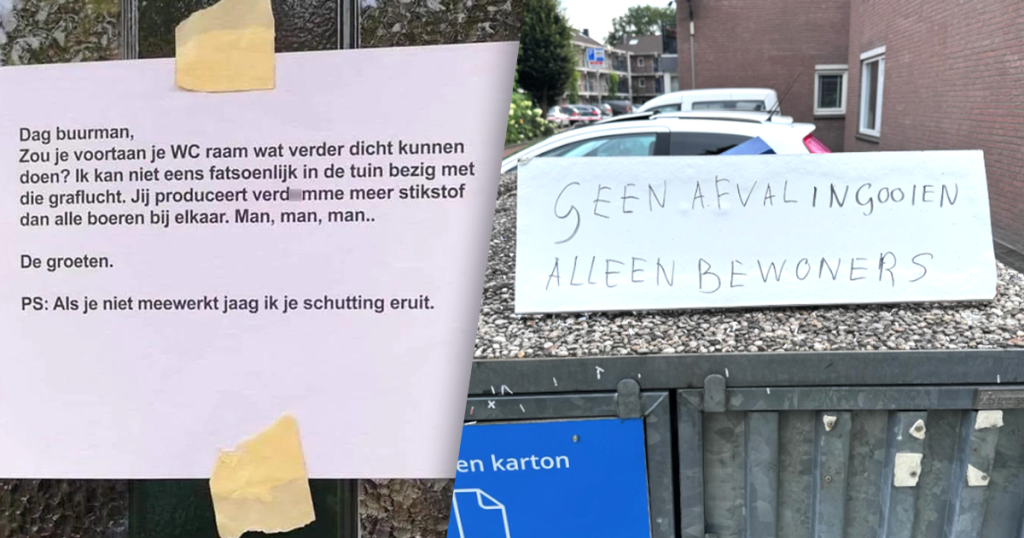 Dag buurman,
Zou je voortaan je WC raam wat verder dicht kunnen
doen? Ik kan niet eens fatsoenlijk in de tuin bezig met
die graflucht. Jij produceert verd mme meer stikstof
dan alle boeren bij elkaar. Man, man, man..
De groeten.
PS: Als je niet meewerkt jaag ik je schutting eruit.
GEEN AFVAL INGOOIEN
ALLEEN BEWONERS
en karton